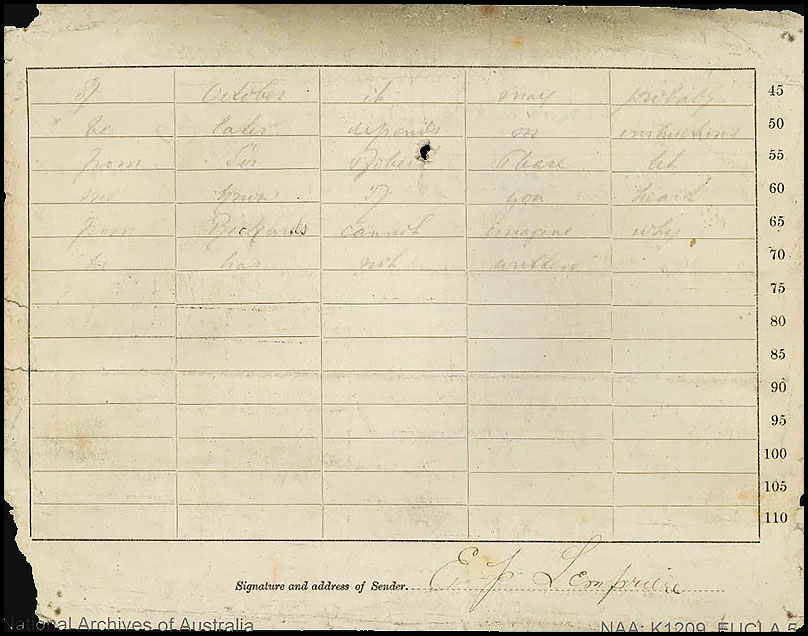 of October it may probably 45
be later depends on instructions 50
from Sir Robert Please let 55
me know if you heard 60
from Rickards cannot imagine why 65
he has not written 70
75
80
85
90
95
100
105
110
Signature and address of Sender. E J Lempriere
National Archives of Australia NAA: K1209, EUCLA 5